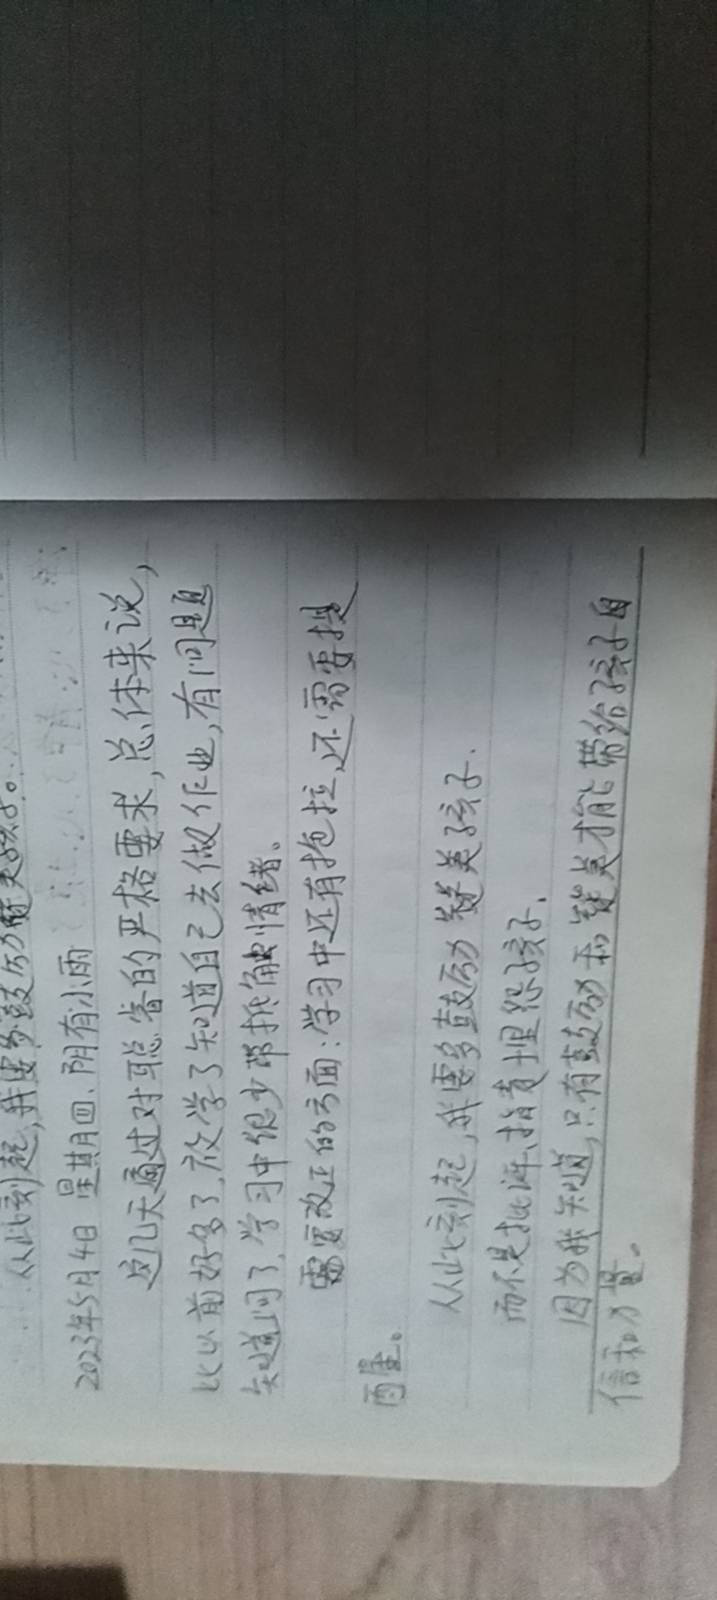 从此刻起,我要多鼓励赞美孩子。
2023年5月4日 星期四、阴有小雨
这几天通过对聪睿的严格要求,总体来说,
比以前好多了,放学了知道自己去做作业,有问题
知道问了,学习中很少带抵触情绪。
需要改正的方面:学习中还有拖拉,还需要提
从此刻起,我要多鼓励 赞美孩子.
而不是批评、指责埋怨孩子.
因为我知道,只有鼓励和赞美才能带给孩子自
信和力量。